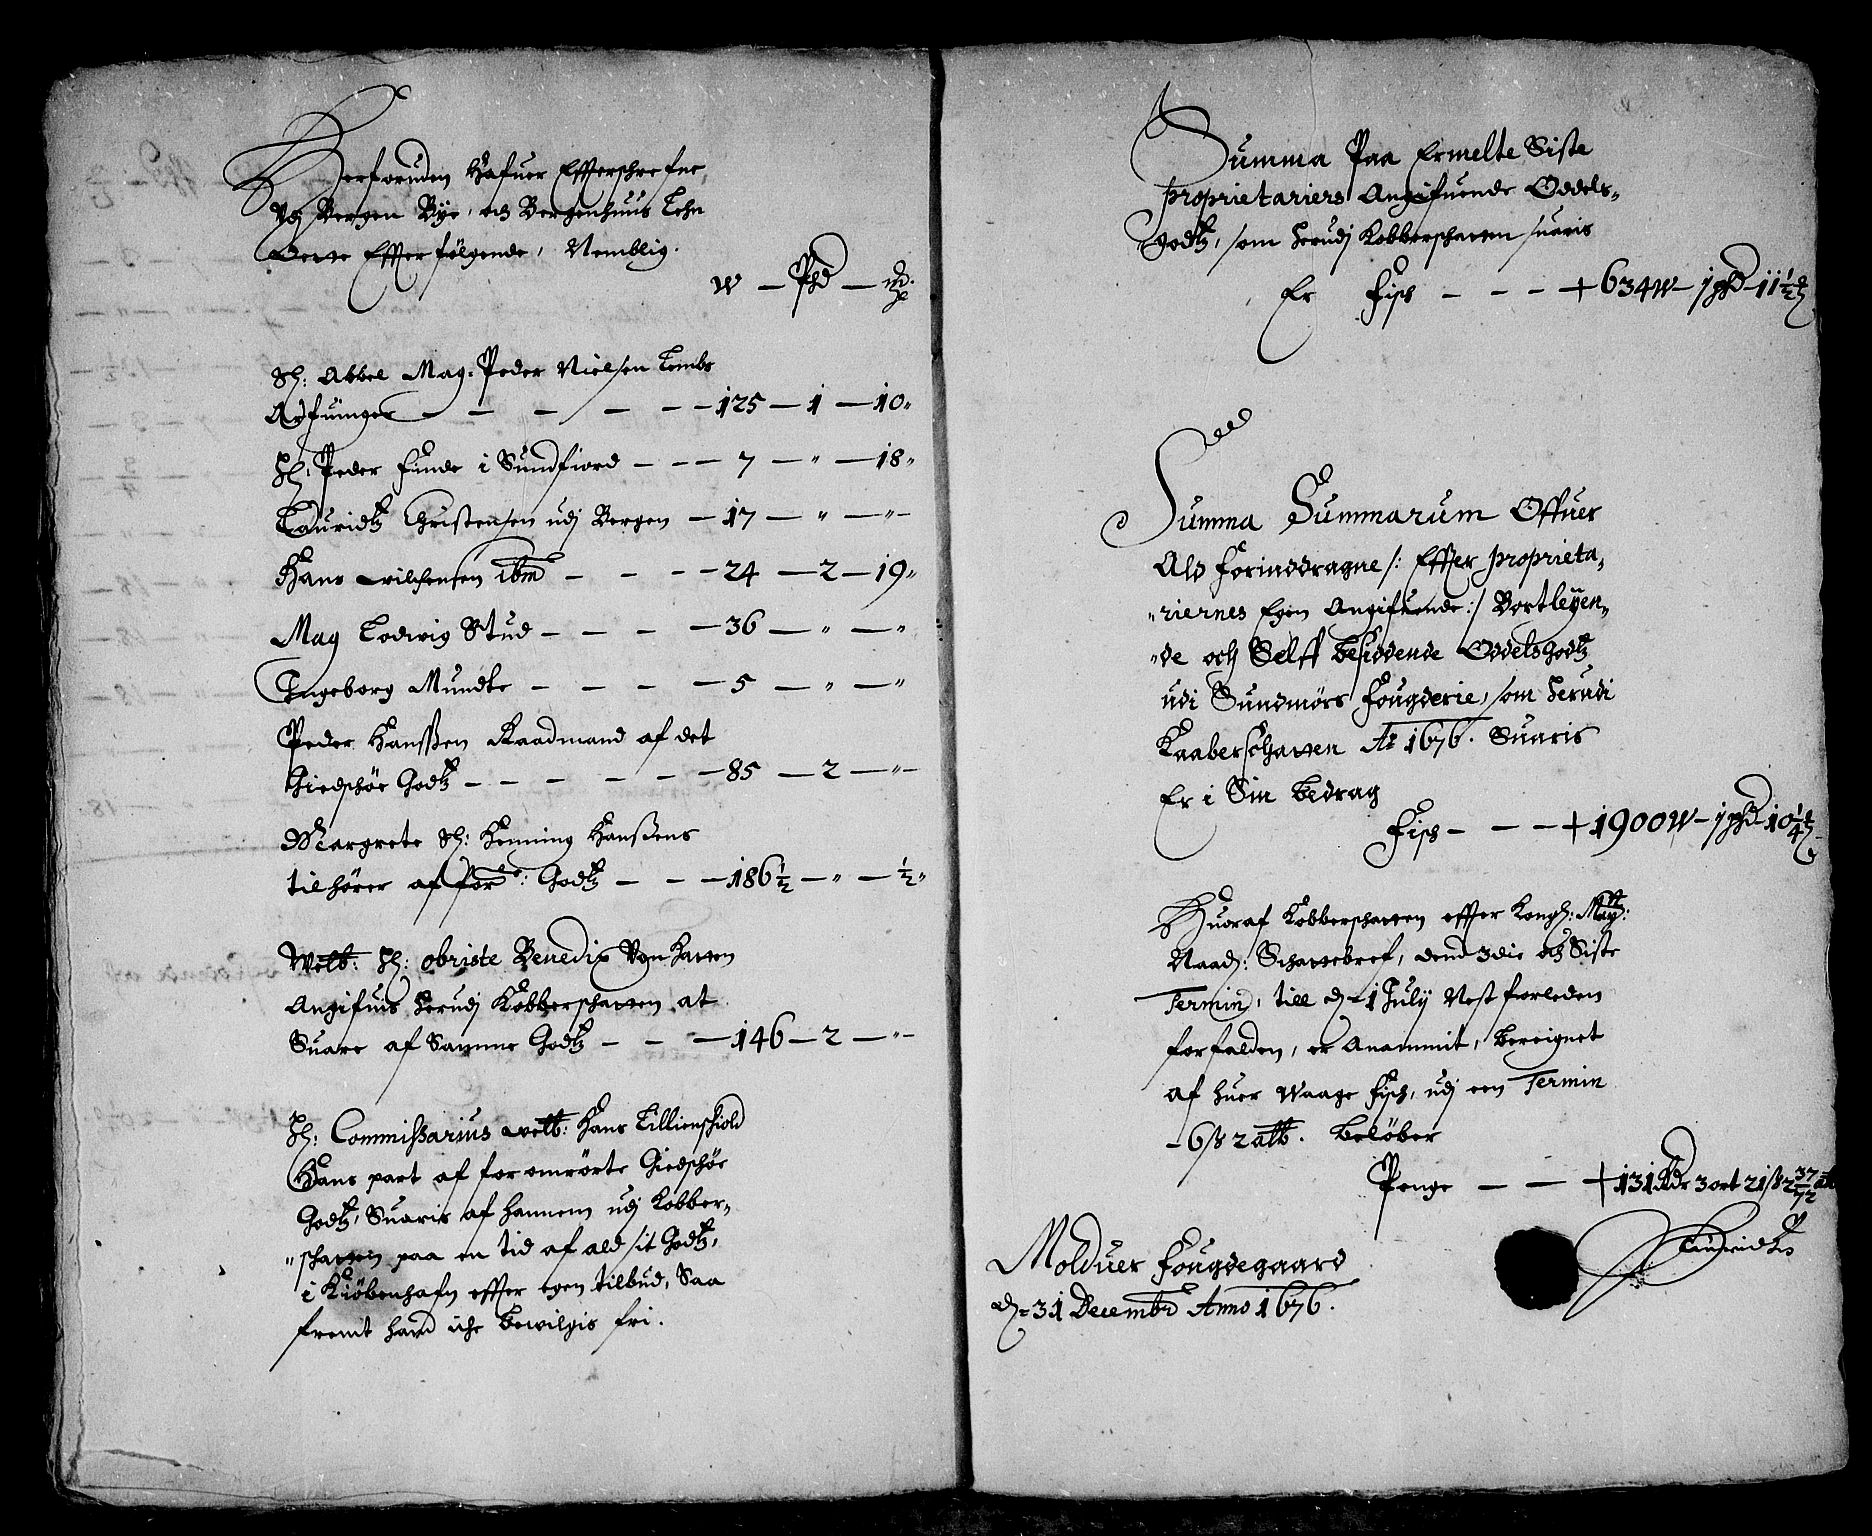 Herforuden Hafuer Effterschrefne
Udj Bergen Bye, och Bergenhuus Lehn
Dette Effterfölgende, Nemblig.
W — Phd — mk
Sl: Abbel Mag. Peder Nielsen Lembs
Arfuinger — — — — — 125 — 1 — 10 "
Hr: Peder Finde i Sundfiord — — — 7 — " — 18 "
Lauridtz Christensen udj Bergen — 17 — " — " —
Hans wilchensen ibm — — — — 24 — 2 — 19 "
Mag Lodwig Stud — — — — 36 — " — "
Ingeborg Mundts — — — — 5 — " — "
Peder Hanssen Raadmand af det
Giedschöe Godtz — — — — — — 85 — 2 — " —
Margrete Sl: Henning Hanssens
tilhörer af forde: Godtz — — — 186½ — " — ½ "
Welb: Hr: obriste Benedix Von Hatten
Angifuis herudj Kobberschatten at
Suare af Samme Godtz — — — 146 — 2 — " —
Hr: Commissarius welb: Hans Lillienschiold
Hans part af for omrörte Giedschöe
Godtz, Suaris af hannem udj Kobber-
"schatten paa en tid af ald sit Godtz,
i Kiöbenhafn effter egen tilbud, Saa
fremt hand iche bewilgis fri.
Summa Paa Ermelte Siste
proprietariers Angifuende Oddels-
godtz, som herudj Kobberschatten suaris
Er Fisch — — — + 634 W — 1 phd — 11½ mk
Summa Summarum Offuer
Ald Forinddragne /: Effter proprieta,
"riernes Egen Angifuende :/ Bortleyen"
"de och Selff besiddende Oddelsgodtz
udi Sundmörs Fougderie, som herudi
Kaaberschatten Ao 1676. Suaris
Er i Sin bedrag
Fisch — — — + 1900 W — 1 phd — 10¼ mk
Huoraf Kobberschatten effter Kongl: Maytt:
Naad: Schattebref, dend 3die och Siste
Termin, till d — 1 July Nest forleden
forfalden, er Anammit, bereignet
af huer Waage Fisch, udj een Termin
— 6 ß 2 alb. belöber
Penge — — + 131 Rdr 3 ort 21 ß 2 37/72 alb
Molduer Fougdegaard
d = 31 Decembr Anno 1676.